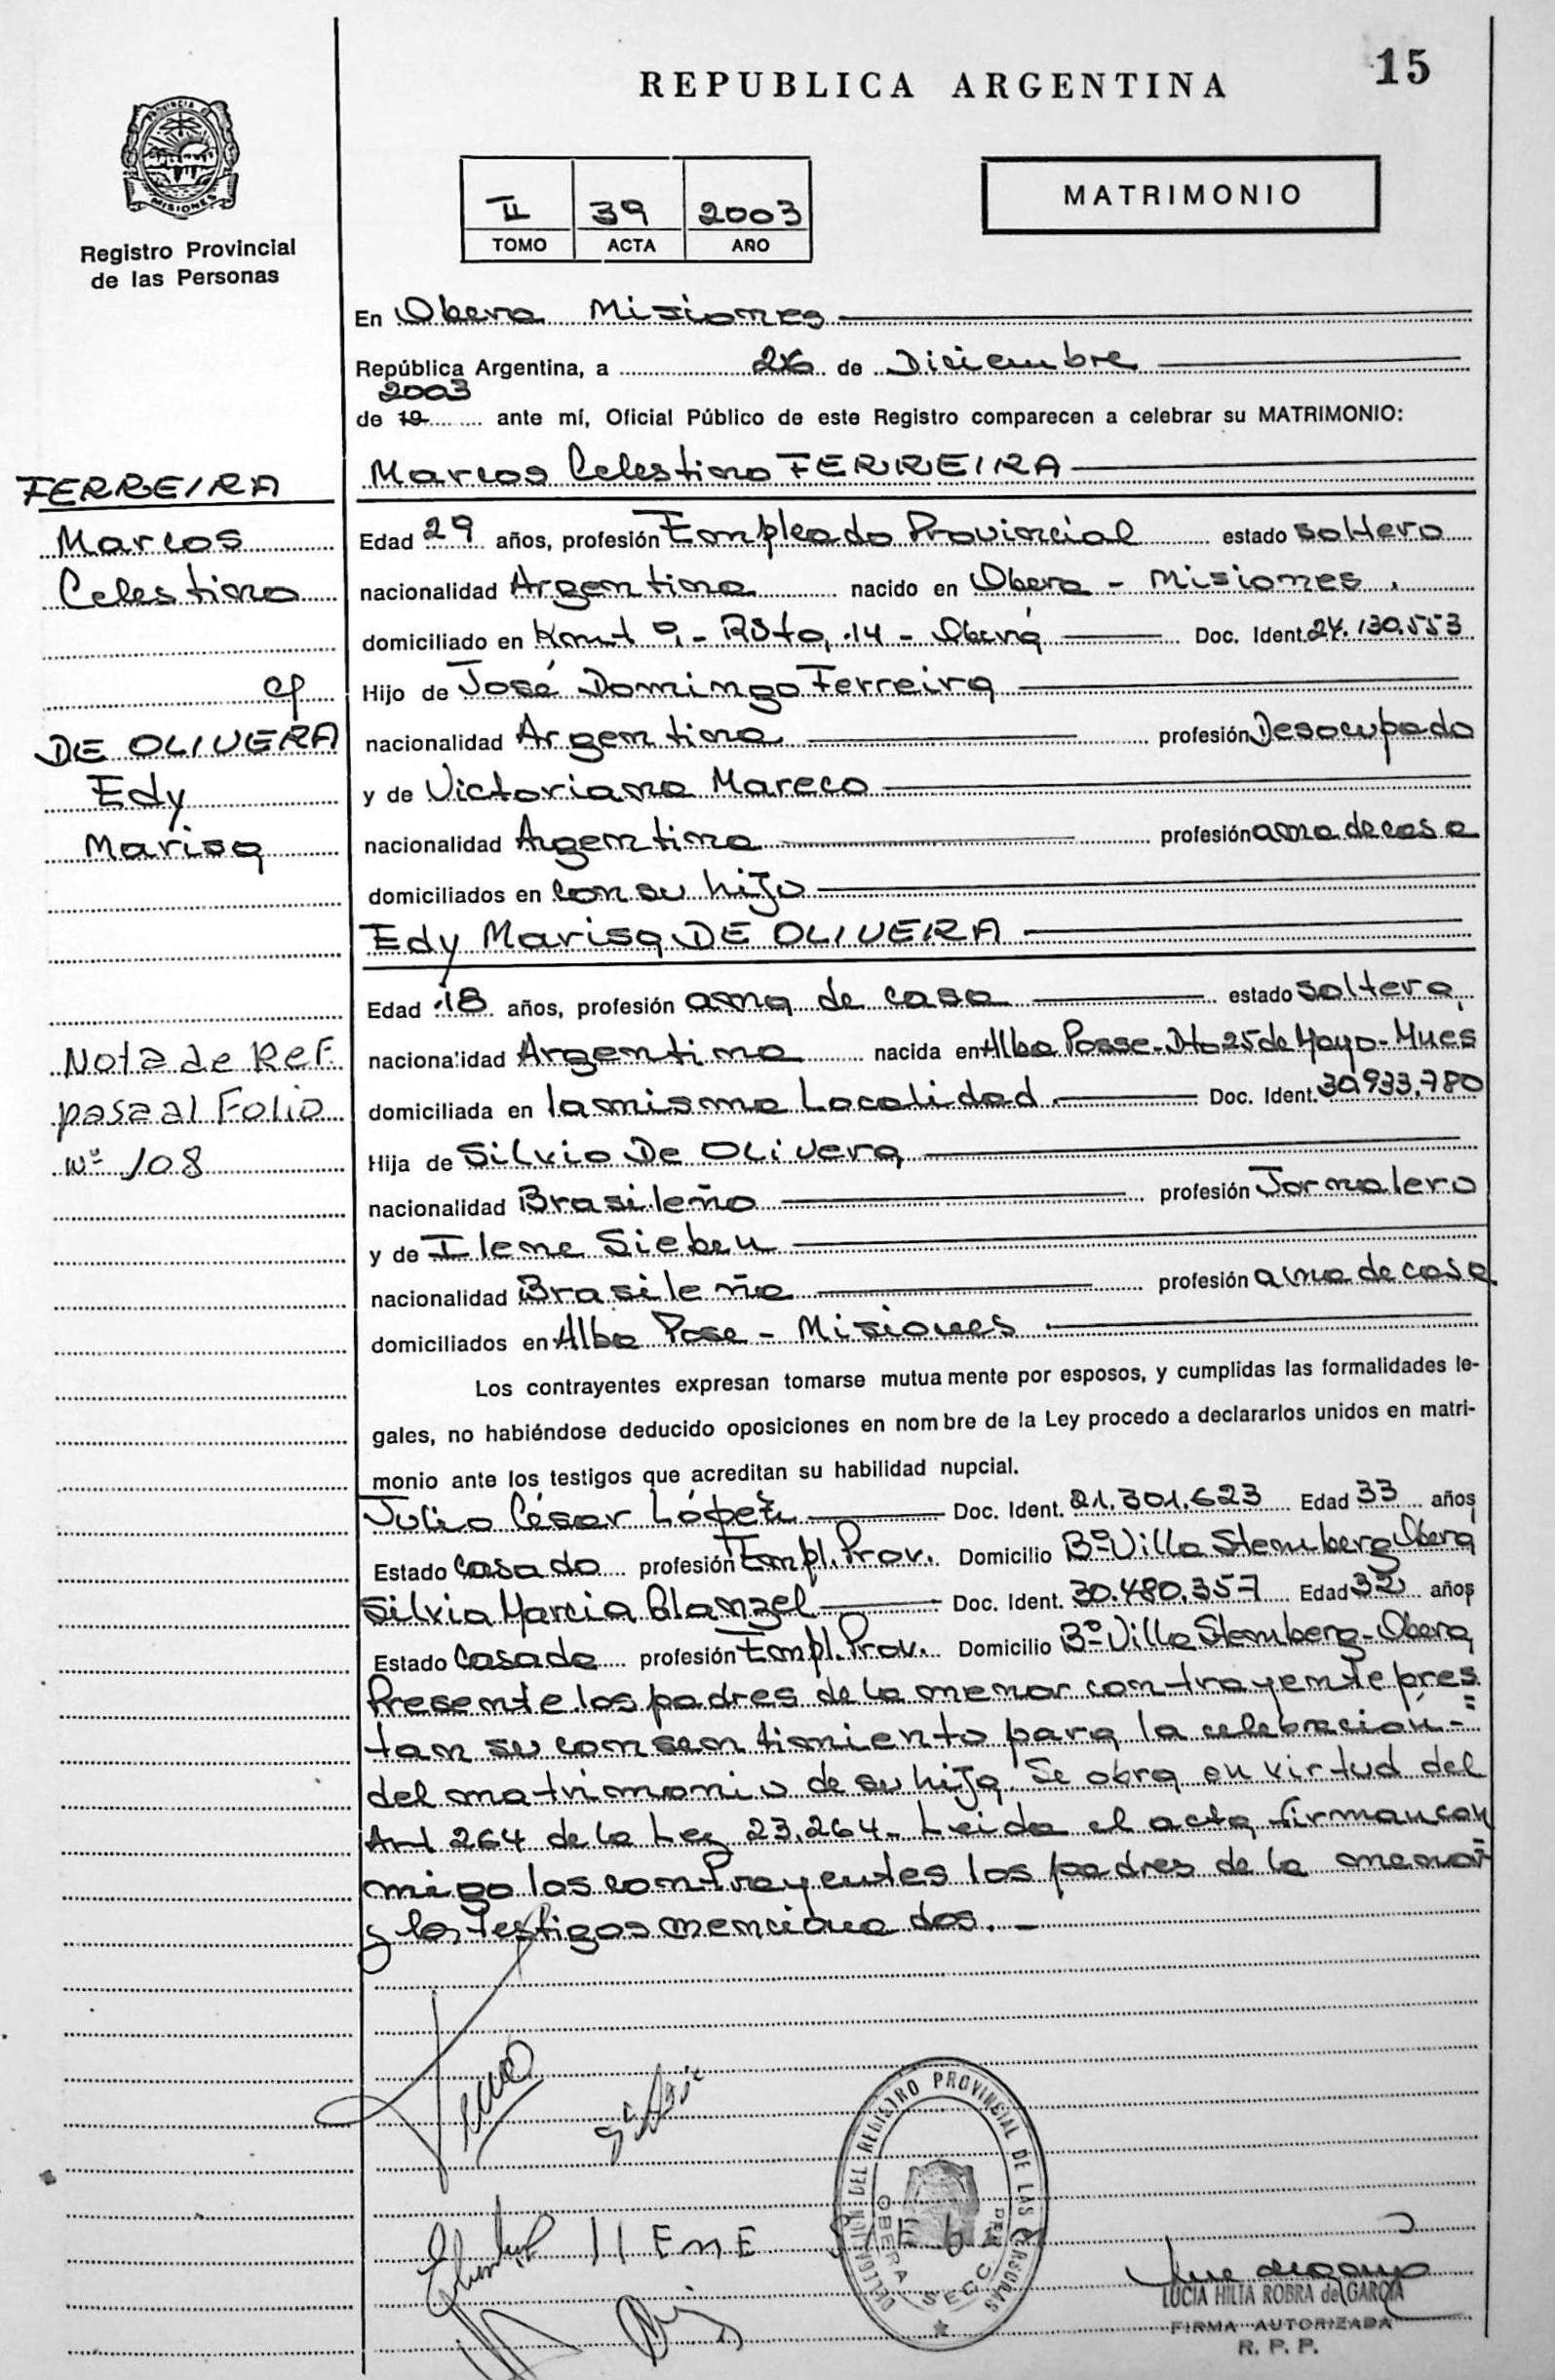 15
REPUBLICA ARGENTINA
PROVINCIA DE
MISIONES
Registro Provincial
de las Personas
II 39 2003
TOMO ACTA AÑO
MATRIMONIO
En Obera Misiones
República Argentina, a 26 de Diciembre
2003
de 19 ante mí, Oficial Público de este Registro comparecen a celebrar su MATRIMONIO:
Marcos Celestino FERREIRA
FERREIRA
Marcos
Celestino
c/
DE OLIVERA
Edy
Marisa
Nota de Ref.
pasa al Folio
Nº 108
Edad 29 años, profesión Empleado Provincial estado soltero
nacionalidad Argentina nacido en Obera - Misiones.
domiciliado en Kmt 9 - Ruta 14 - Oberá Doc. Ident. 24.130.553
Hijo de José Domingo Ferreira
nacionalidad Argentina profesión Desocupado
y de Victoriana Mareco
nacionalidad Argentina profesión ama de casa
domiciliados en con su hijo
Edy Marisa DE OLIVEIRA
Edad 18 años, profesión ama de casa estado soltera
nacionalidad Argentina nacida en Alba Posse - Dto 25 de Mayo - Mnes
domiciliada en la misma Localidad Doc. Ident. 30.933.780
Hija de Silvio De Olivera
nacionalidad Brasileño profesión Jornalero
y de Ilene Sieben
nacionalidad Brasileña profesión ama de casa
domiciliados en Alba Pose - Misiones
Los contrayentes expresan tomarse mutuamente por esposos, y cumplidas las formalidades le-
gales, no habiéndose deducido oposiciones en nombre de la Ley procedo a declararlos unidos en matri-
monio ante los testigos que acreditan su habilidad nupcial.
Julio César López Doc. Ident. 21.301.623 Edad 33 años
Estado Casado profesión Empl. Prov. Domicilio Bº Villa Stemberg Obera
Silvia Marcia Blanzel Doc. Ident. 30.480.357 Edad 32 años
Estado Casada profesión Empl. Prov. Domicilio Bº Villa Stemberg - Obera
Presente los padres de la menor contrayente pres
tan su consentimiento para la celebración -
del matrimonio de su hija. Se obra en virtud del
Art 264 de la Ley 23.264 - Leida el acta firman con
migo los contrayentes los padres de la menor
y los testigos mencionados. -
DELEGACION DEL REGISTRO PROVINCIAL DE LAS PERSONAS
OBERA SECC.
LUCIA HILTA ROBRA de GARCIA
FIRMA AUTORIZADA
R. P. P.